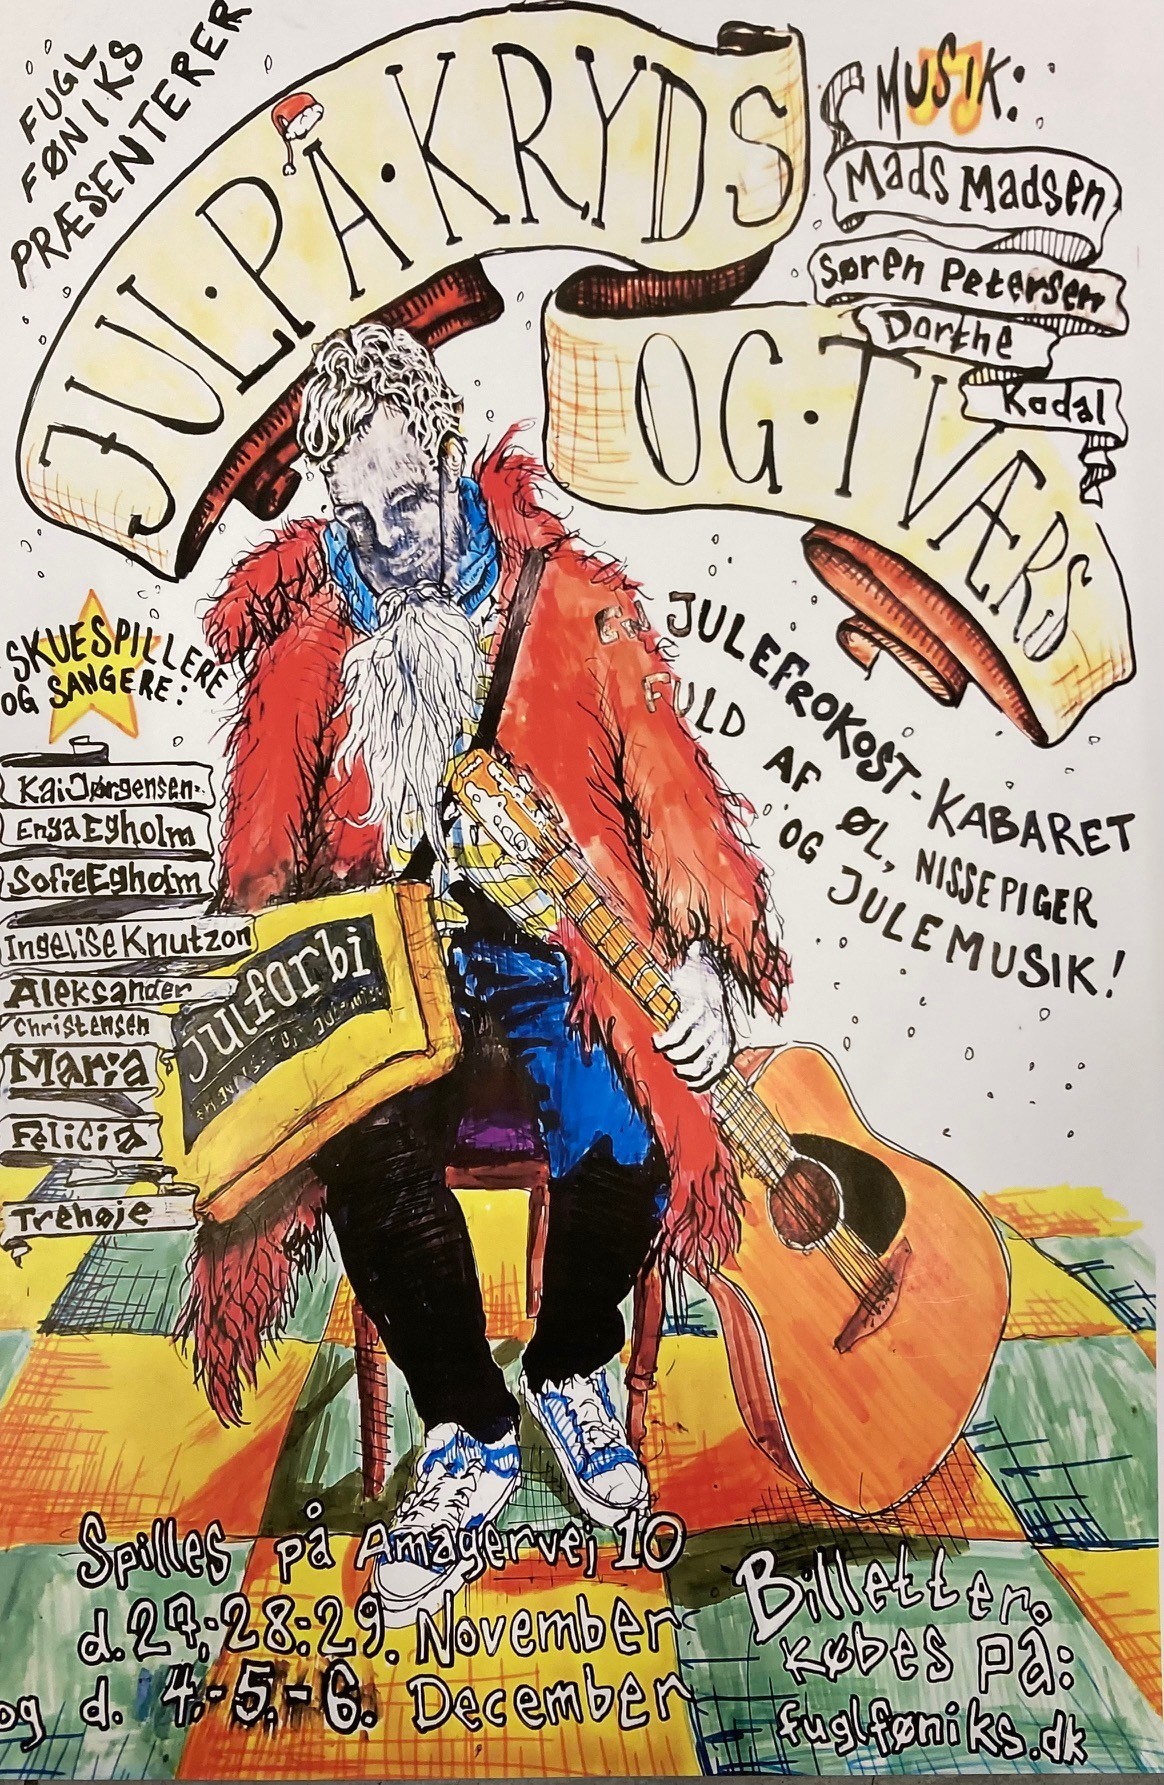 FUGL
FØNIKS
PRÆSENTERER
JUL·PÅ·KRYDS
OG·TVÆRS
MUSIK:
Mads Madsen
Søren Petersen
Dorthe
Kodal
EN JULEFROKOST-KABARET
FULD AF ØL, NISSEPIGER
OG JULEMUSIK!
SKUESPILLERE
OG SANGERE:
Kai Jørgensen
Enya Egholm
Sofie Egholm
Ingelise Knutzon
Aleksander
Christensen
Maria
Felicia
Trehøje
Julforbi
Spilles på Amagervej 10
d. 27.-28.-29. November
og d. 4.-5.-6. December
Billetter
købes på:
fuglføniks.dk